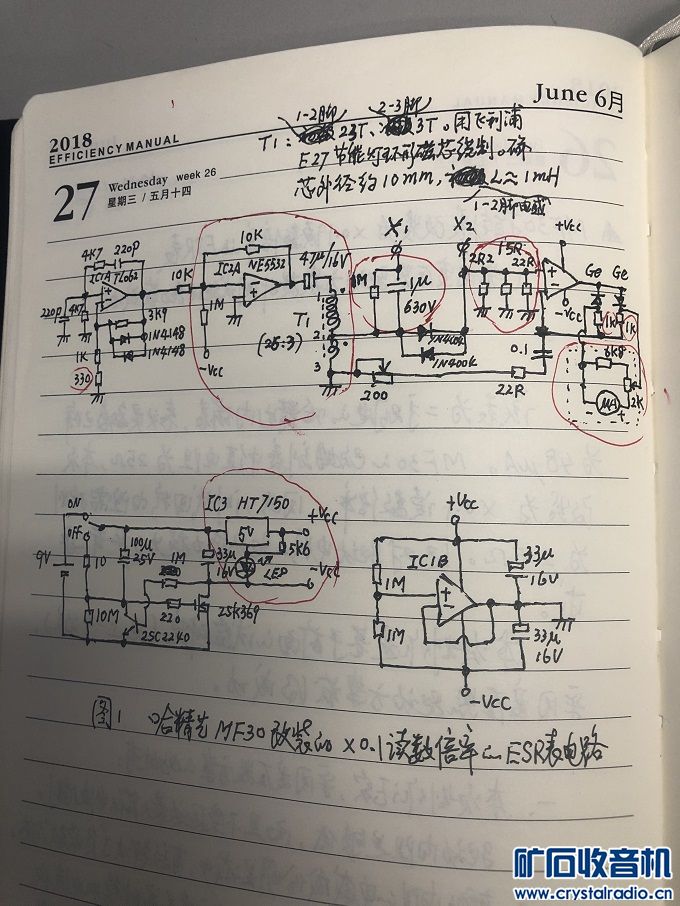 June 6月
2018
EFFICIENCY MANUAL
27 Wednesday week 26
星期三 / 五月十四
1-2脚 2-3脚
T1: 23T、3T。用飞利浦
E27节能灯环形磁芯绕制。磁
芯外径约10mm, L≈1mH
1-2脚电感
4K7 220P
IC1A TL062
220P 4K7
1K
330
3K9
1N4148
1N4148
10K
10K
IC2A NE5532
1M
-Vcc
47μ/16V
T1
(25:3)
1
2
3
X1
1M
1μ
630V
X2
1N400X
1N400X
200
2R2 15R 22R
22R
0.1
+Vcc
-Vcc
Ge Ge
1K 1K
6K8
2K
μA
ON
OFF
9V
10
10M
100μ
25V
1M
220
2SC2240
33μ
16V
2SK369
IC3 HT7150
5V
5K6
LED
+Vcc
-Vcc
+Vcc
1M
1M
IC1B
33μ
16V
33μ
16V
-Vcc
图1 哈精先MF30改装的×0.1读数倍率的ESR表电路
矿石收音机
www.crystalradio.cn